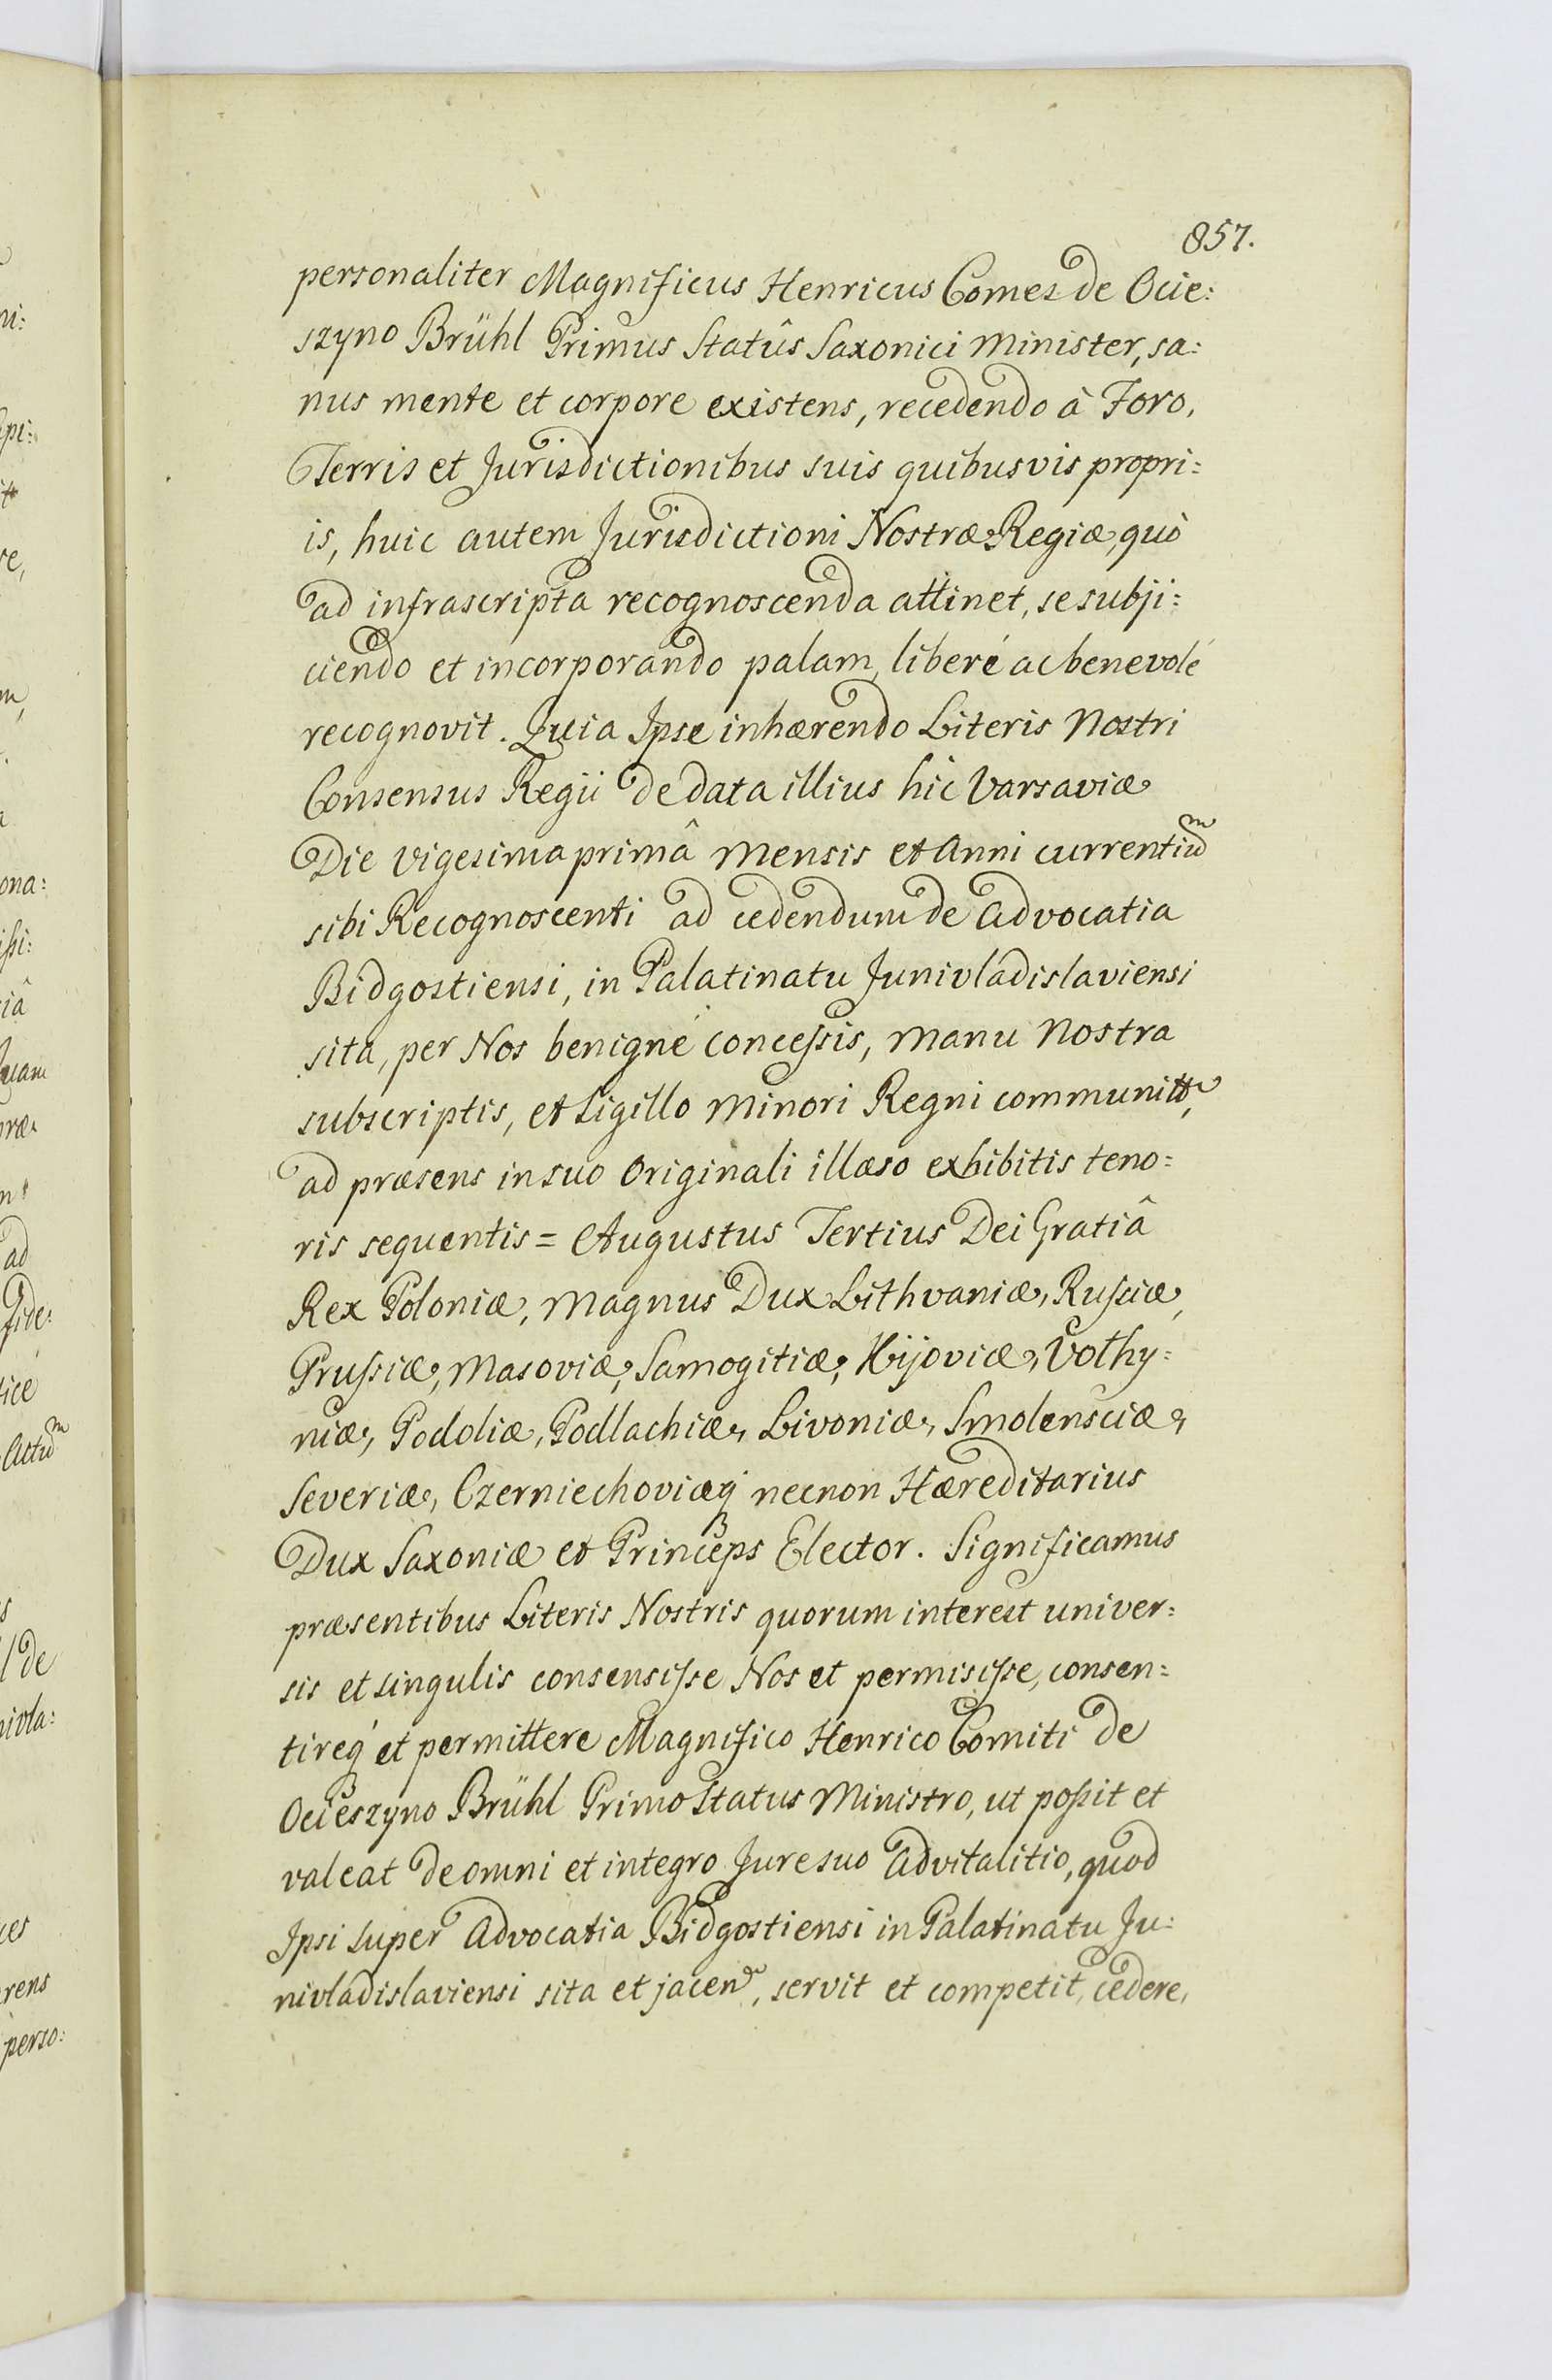 857.
personaliter Magnificus Henricus Comes de Ocie:
szyno Brühl Primus Statûs Saxonici Minister, sa:
nus mente et corpore existens, recedendo à Foro,
Terris et Jurisdictionibus suis quibusvis propri:
is, huic autem Jurisdictioni Nostræ Regiæ, quò
ad infrascripta recognoscenda attinet, se subji:
ciendo et incorporando palam, liberé ac benevolé
recognovit. Quia Ipse inhærendo Literis Nostri
Consensus Regii de data illius hic Varsaviæ
Die vigesima primâ Mensis et Anni currentium
sibi Recognoscenti ad cedendum de Advocatia
Bidgostiensi, in Palatinatu Junivladislaviensi
sita, per Nos benigné concessis, Manu Nostra
subscriptis, et Sigillo Minori Regni communitt,
ad præsens in suo Originali illæso exhibitis teno:
ris sequentis = Augustus Tertius Dei Gratiâ
Rex Poloniæ, Magnus Dux Lithvaniæ, Russiæ,
Prussiæ, Masoviæ, Samogitiæ, Kijoviæ, Volhy:
niæ, Podoliæ, Podlachiæ, Livoniæ, Smolensciæ,
Severiæ, Czerniechoviæq́ necnon Hæreditarius
Dux Saxoniæ et Princeps Elector. Significamus
præsentibus Literis Nostris quorum interest univer:
sis et singulis consensisse Nos et permisisse, consen:
tireq́ et permittere Magnifico Henrico Comiti de
Ocieszyno Brühl Primo Status Ministro, ut possit et
valeat de omni et integro Jure suo Advitalitio, quod
Ipsi super Advocatia Bidgostiensi in Palatinatu Ju:
nivladislaviensi sita et jacen, servit et competit, cedere,